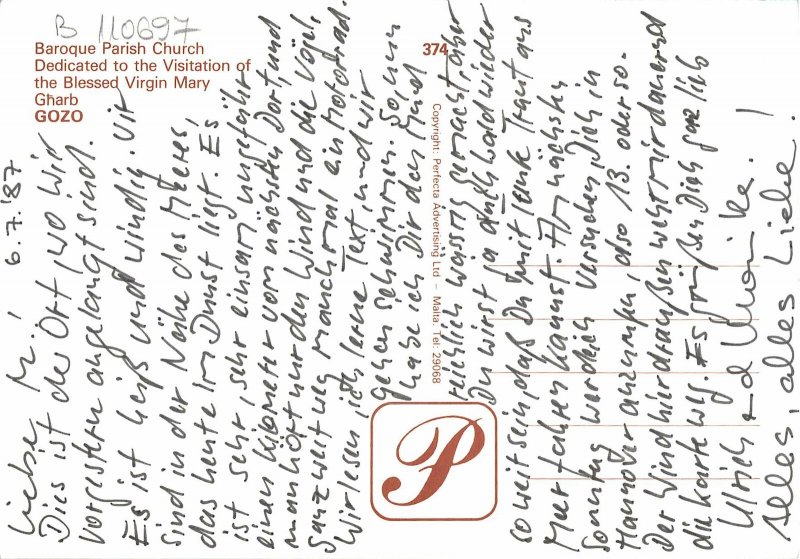 B 110697
Baroque Parish Church
Dedicated to the Visitation of
the Blessed Virgin Mary
Għarb
GOZO
374
Copyright: Perfecta Advertising Ltd – Malta. Tel: 29068
P
6.7.'87
Liebe M.!
Dies ist der Ort, wo wir
vorgestern angelangt sind.
Es ist heiß und windig. Wir
sind in der Nähe des Meeres,
das heute im Dunst liegt. Es
ist sehr, sehr einsam, ungefähr
einen Kilometer vom nächsten Dorf, und
man hört nur den Wind und die Vögel,
ganz weit weg manchmal ein Motorrad.
Wir lesen, ich lerne Text, und wir
gehen schwimmen. Schon
habe ich Dir den Mund
reichlich wässrig gemacht, aber
Du wirst ja auch bald wieder
so weit sein, daß Du mit
Meer fahren kannst. Am nächsten
Sonntag werde ich versuchen, Dich in
Hannover anzurufen, also 13. oder so.
Der Wind hier draußen weht mir dauernd
die Karte weg. Es grüßen Dich ganz lieb
Ulrich und Monika!
Alles, alles Liebe!